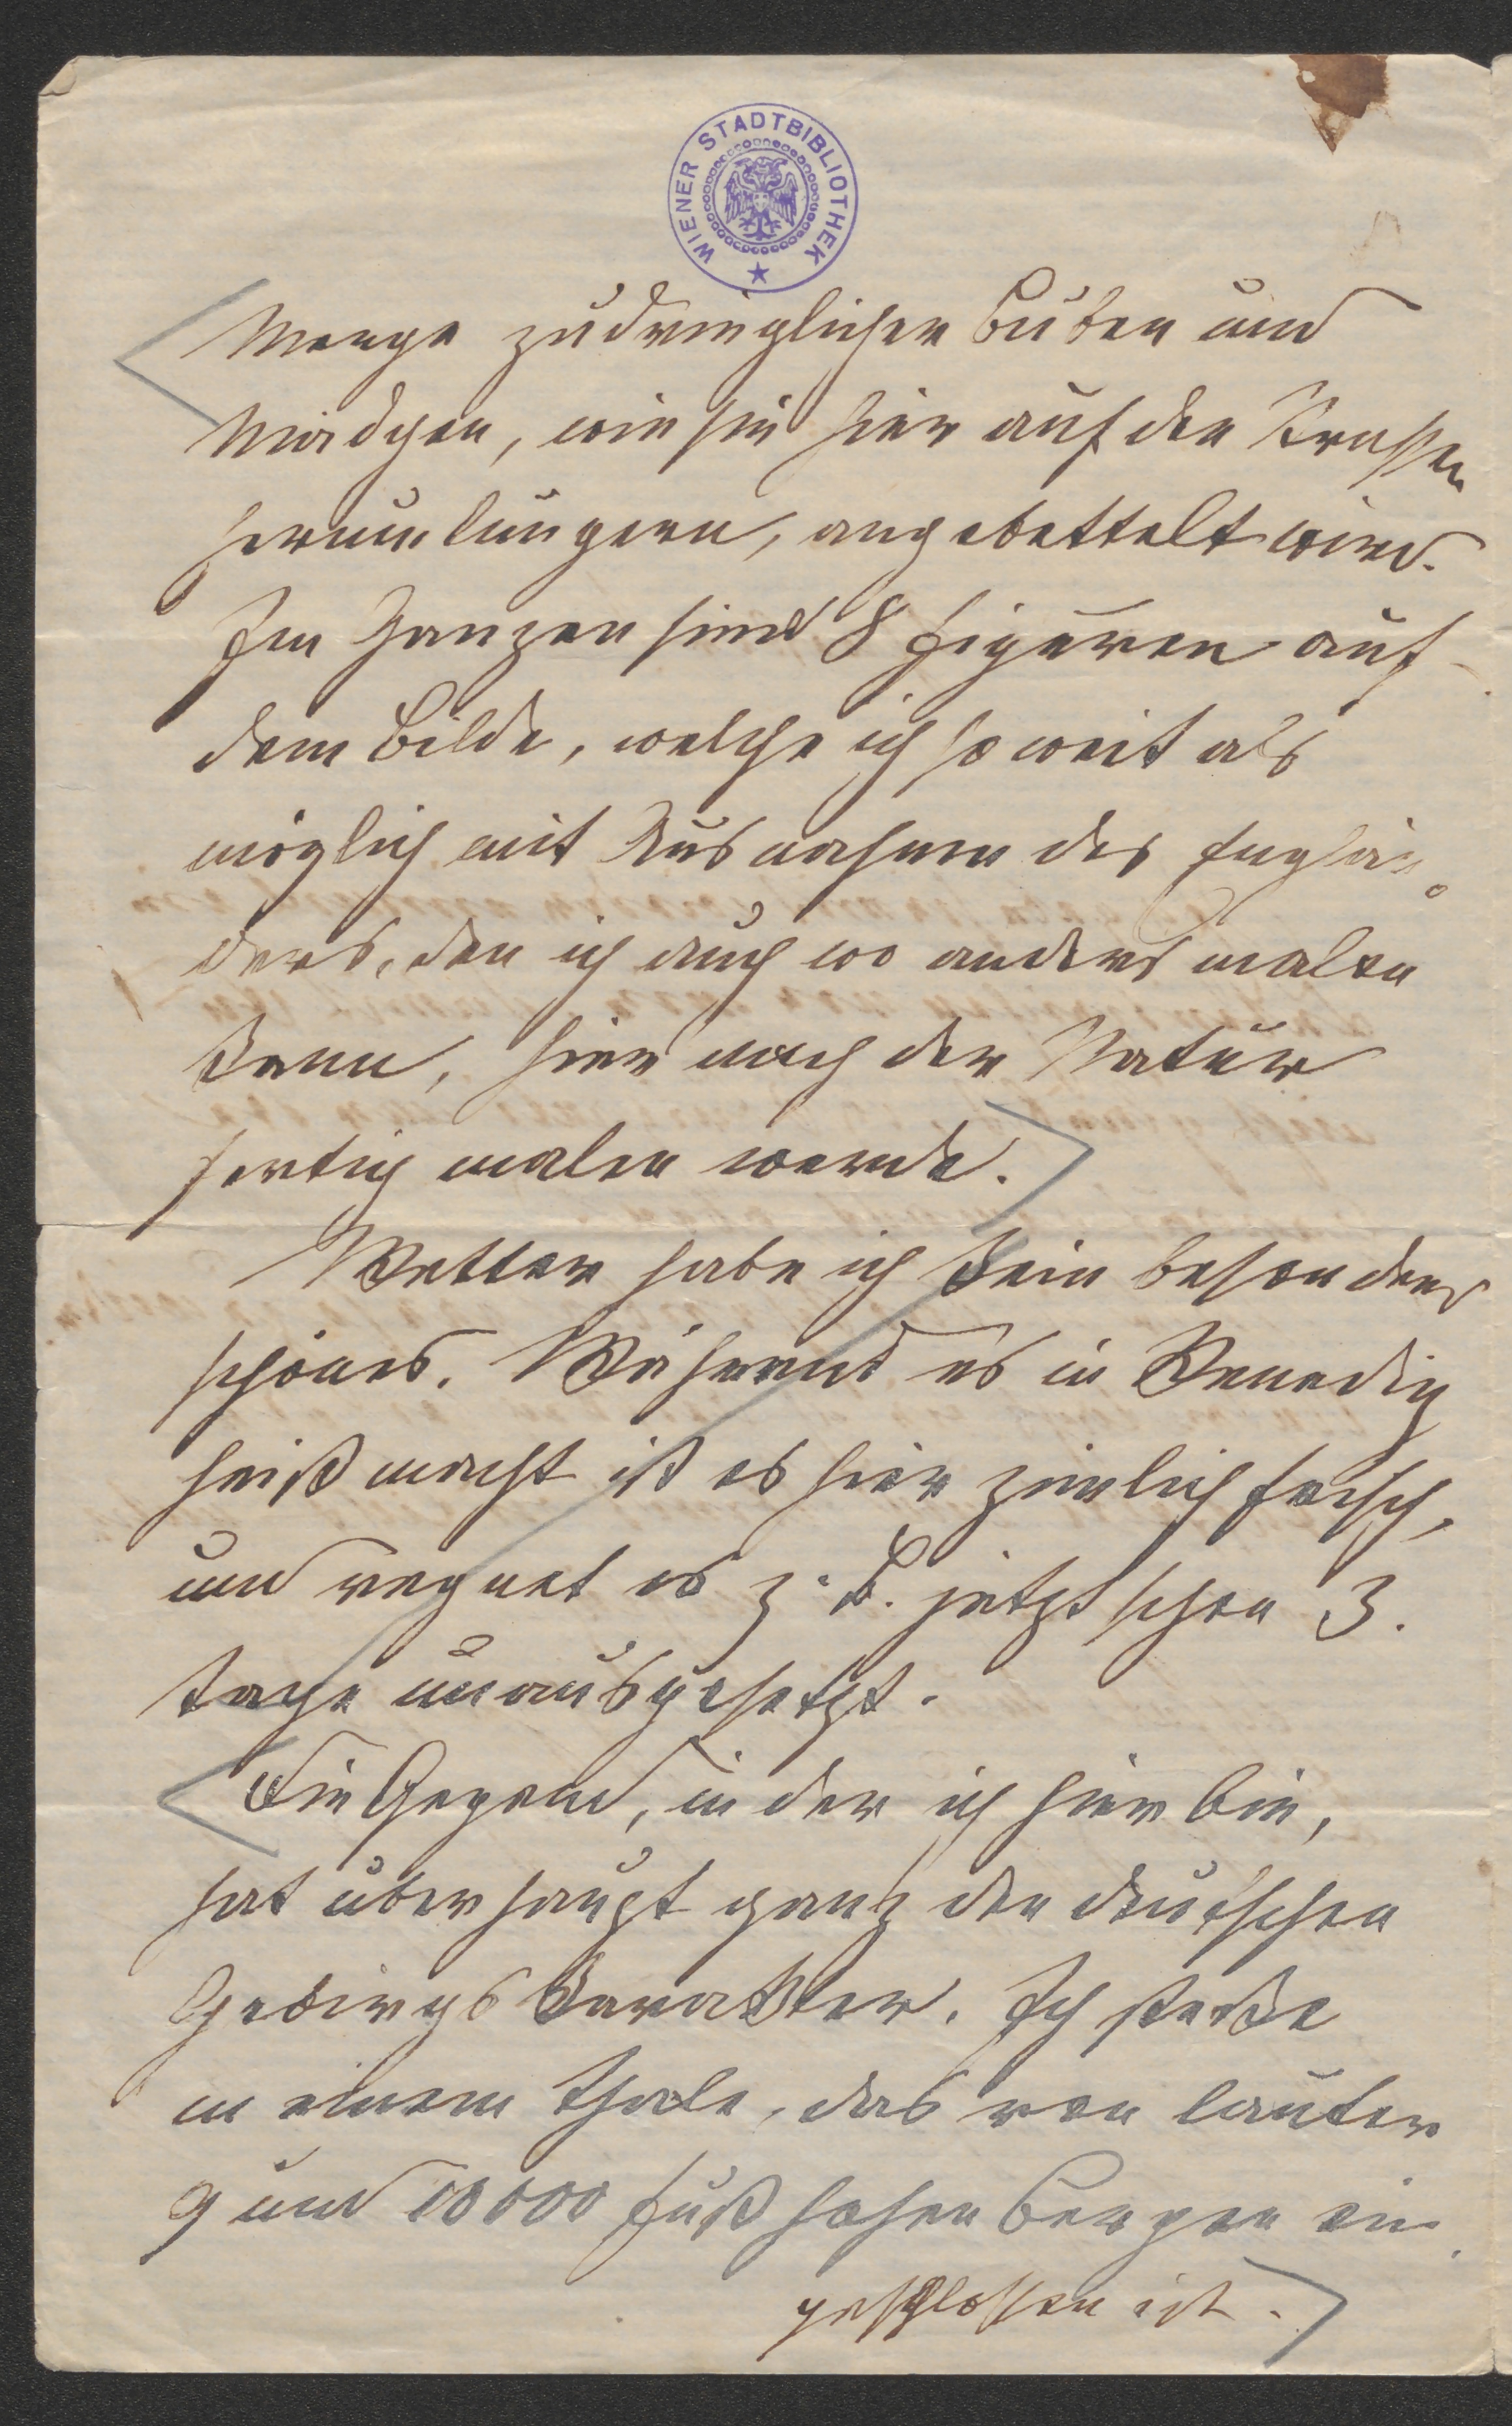 WIENER STADTBIBLIOTHEK
Menge zudringlicher Buben und
Mädchen, wie sie hier auf den Strassen
herumlungern, angebettelt wird.
Im Ganzen sind 8 Figuren auf
dem Bilde, welche ich so weit als
möglich mit Ausnahme des Englän-
ders, den ich auch wo anders malen
kann, hier nach der Natur
fertig malen werde.
Wetter habe ich kein besonders
schönes. Während es in Venedig
heiß macht ist es hier zimlich frisch,
und regnet es z. B. jetzt schon 3.
Tage unausgesetzt.
Die Gegend, in der ich hier bin,
hat überhaupt ganz den deutschen
Gebirgskarakter. Ich stecke
in einem Thale, das von lauter
9 und 10000 Fuß hohen Bergen ein-
geschlossen ist.